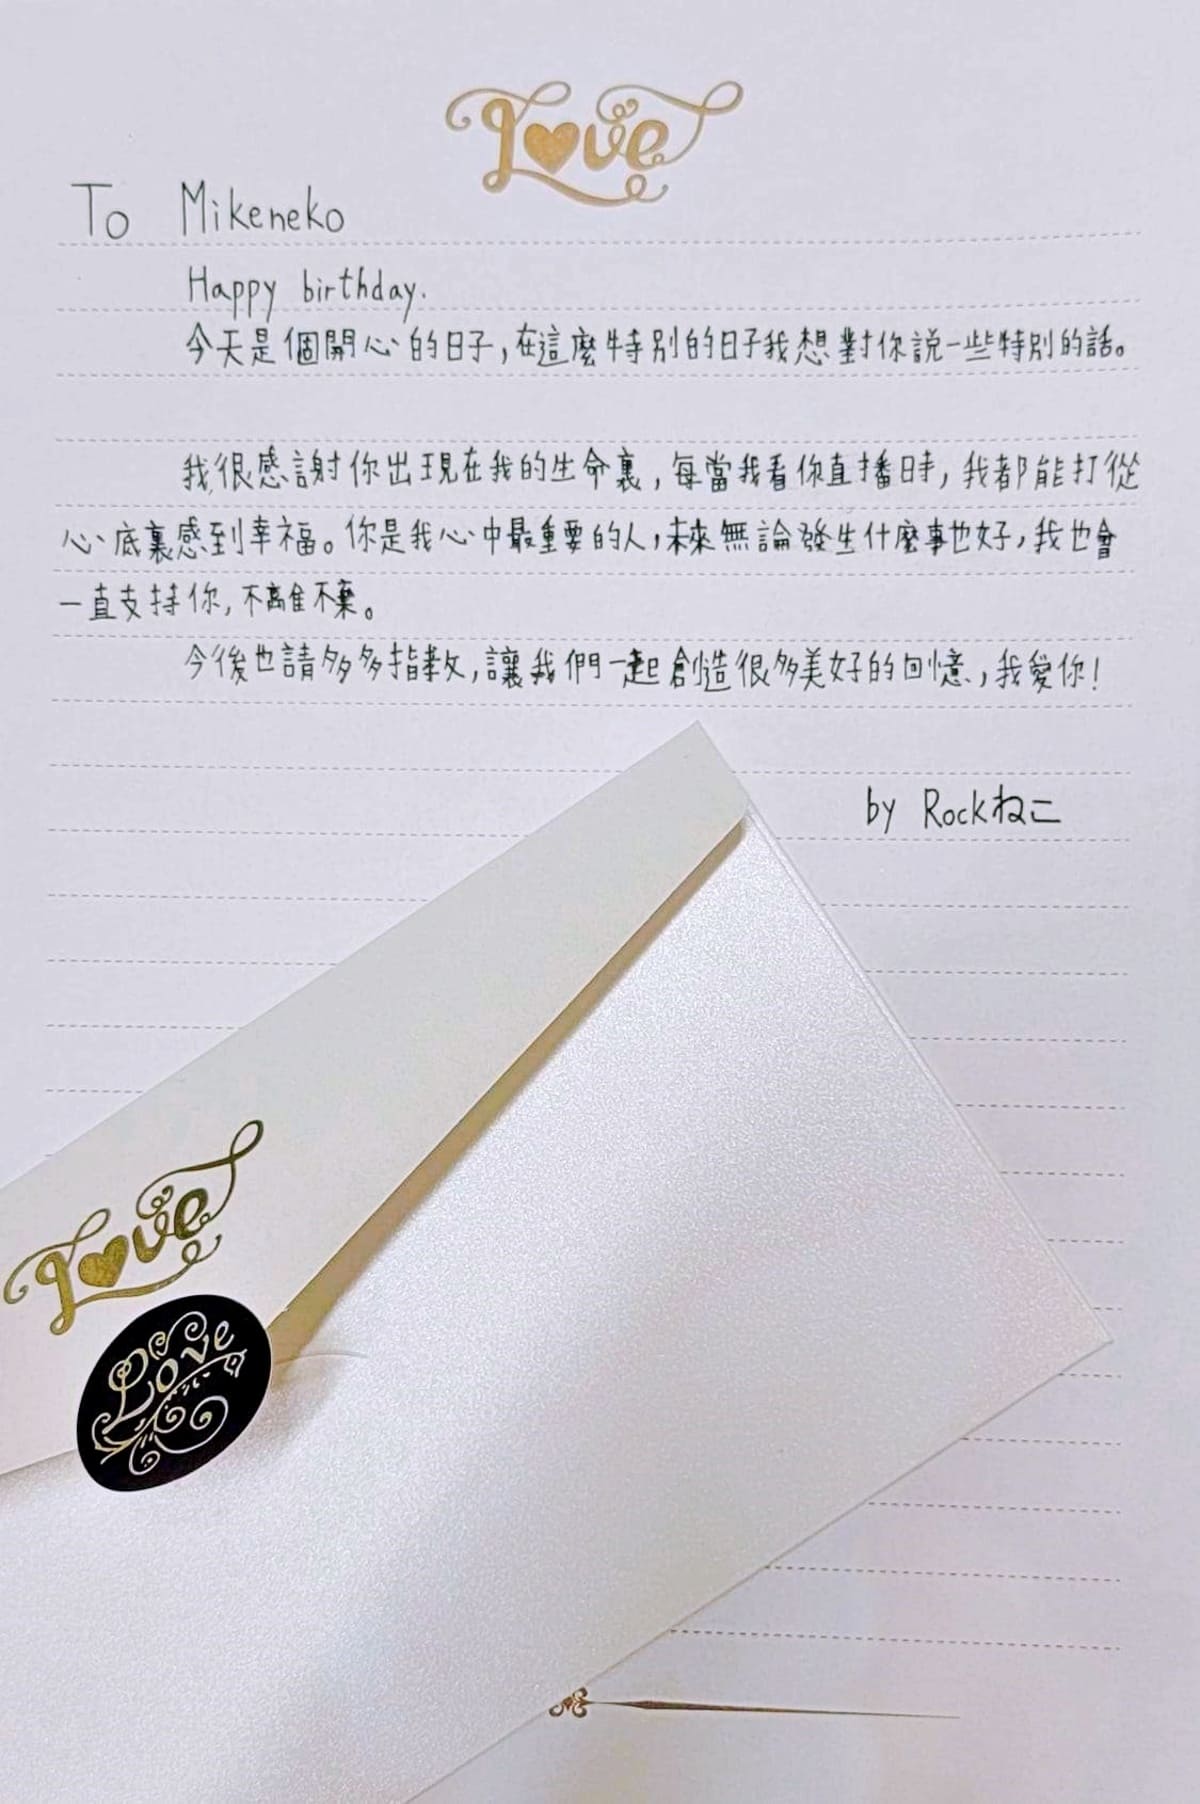 Love
To Mikeneko
Happy birthday.
今天是個開心的日子,在這麼特別的日子我想對你說一些特別的話。
我很感謝你出現在我的生命裏,每當我看你直播時,我都能打從
心底裏感到幸福。你是我心中最重要的人,未來無論發生什麼事也好,我也會
一直支持你,不離不棄。
今後也請多多指教,讓我們一起創造很多美好的回憶,我愛你!
by Rockねこ
Love
Love